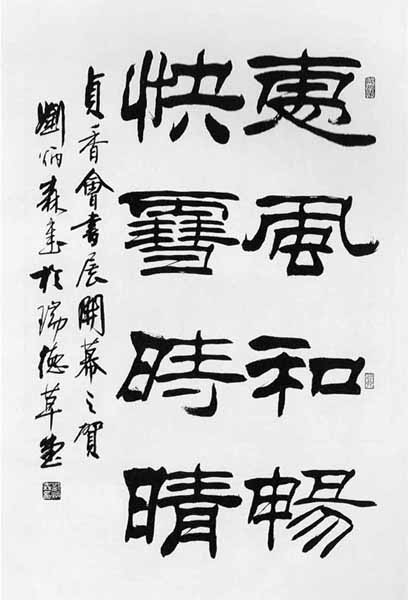 惠風和暢
快雪時晴
貞香會書展開幕之賀
劉炳森書於瑞德草堂